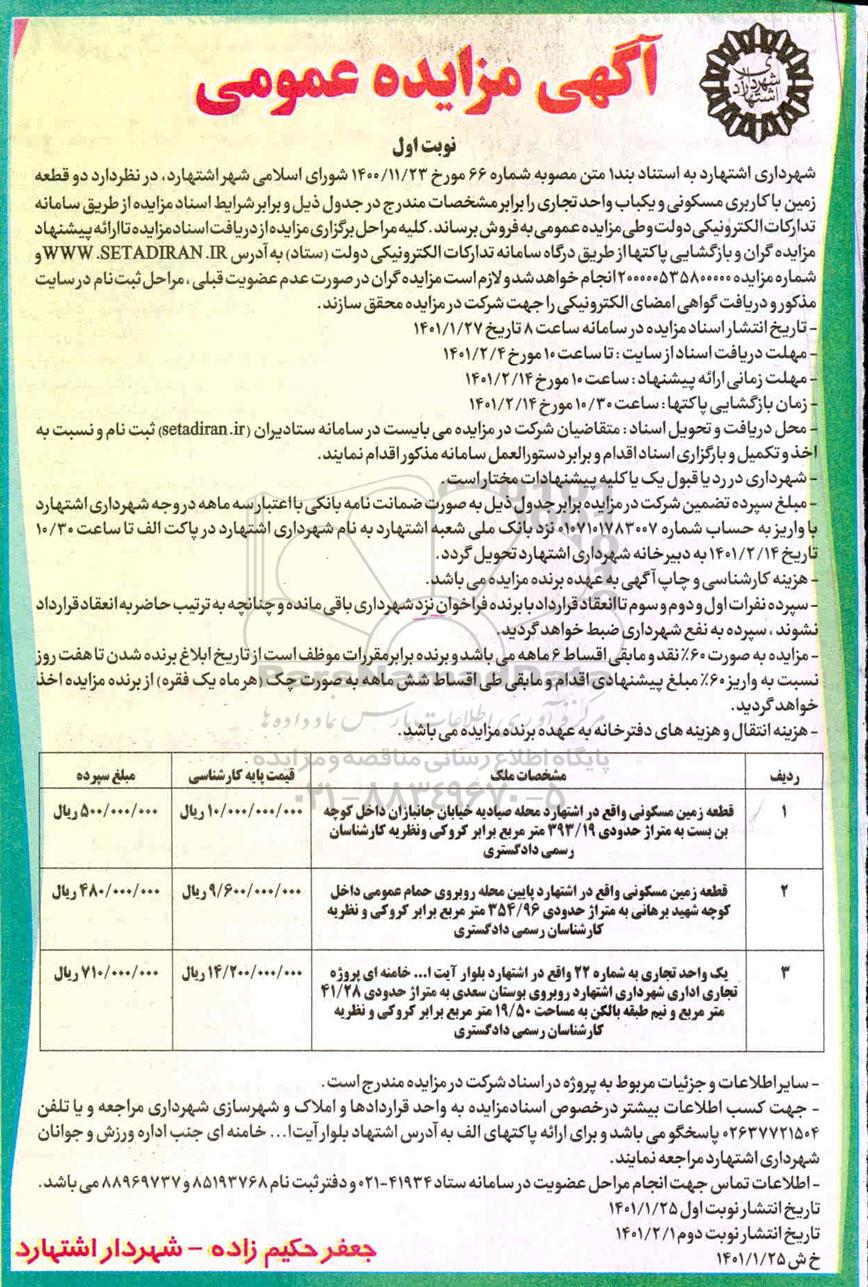 شهرداری اشتهارد
آگهی مزایده عمومی
نوبت اول
شهرداری اشتهارد به استناد بند۱ متن مصوبه شماره ۶۶ مورخ ۱۴۰۰/۱۱/۲۳ شورای اسلامی شهر اشتهارد، در نظر دارد دو قطعه
زمین با کاربری مسکونی و یکباب واحد تجاری را برابر مشخصات مندرج در جدول ذیل و برابر شرایط اسناد مزایده از طریق سامانه
تدارکات الکترونیکی دولت وطی مزایده عمومی به فروش برساند. کلیه مراحل برگزاری مزایده از دریافت اسناد مزایده تا ارائه پیشنهاد
مزایده گران و بازگشایی پاکتها از طریق درگاه سامانه تدارکات الکترونیکی دولت (ستاد) به آدرس WWW.SETADIRAN.IR و
شماره مزایده ۲۰۰۰۰۰۵۳۵۸۰۰۰۰۰۰ انجام خواهد شد و لازم است مزایده گران در صورت عدم عضویت قبلی، مراحل ثبت نام در سایت
مذکور و دریافت گواهی امضای الکترونیکی را جهت شرکت در مزایده محقق سازند.
- تاریخ انتشار اسناد مزایده در سامانه ساعت ۸ تاریخ ۱۴۰۱/۱/۲۷
- مهلت دریافت اسناد از سایت : تا ساعت ۱۰ مورخ ۱۴۰۱/۲/۴
- مهلت زمانی ارائه پیشنهاد : ساعت ۱۰ مورخ ۱۴۰۱/۲/۱۴
- زمان بازگشایی پاکتها : ساعت ۱۰/۳۰ مورخ ۱۴۰۱/۲/۱۴
- محل دریافت و تحویل اسناد : متقاضیان شرکت در مزایده می بایست در سامانه ستادیران (setadiran.ir) ثبت نام و نسبت به
اخذ و تکمیل و بارگزاری اسناد اقدام و برابر دستورالعمل سامانه مذکور اقدام نمایند.
- شهرداری در رد یا قبول یک یا کلیه پیشنهادات مختار است.
- مبلغ سپرده تضمین شرکت در مزایده برابر جدول ذیل به صورت ضمانت نامه بانکی با اعتبار سه ماهه در وجه شهرداری اشتهارد
با واریز به حساب شماره ۰۱۰۷۱۰۱۷۸۳۰۰۷ نزد بانک ملی شعبه اشتهارد به نام شهرداری اشتهارد در پاکت الف تا ساعت ۱۰/۳۰
تاریخ ۱۴۰۱/۲/۱۴ به دبیرخانه شهرداری اشتهارد تحویل گردد.
- هزینه کارشناسی و چاپ آگهی به عهده برنده مزایده می باشد.
- سپرده نفرات اول و دوم و سوم تا انعقاد قرارداد با برنده فراخوان نزد شهرداری باقی مانده و چنانچه به ترتیب حاضر به انعقاد قرارداد
نشوند ، سپرده به نفع شهرداری ضبط خواهد گردید.
- مزایده به صورت ۶۰٪ نقد و مابقی اقساط ۶ ماهه می باشد و برنده برابر مقررات موظف است از تاریخ ابلاغ برنده شدن تا هفت روز
نسبت به واریز ۶۰٪ مبلغ پیشنهادی اقدام و مابقی طی اقساط شش ماهه به صورت چک (هر ماه یک فقره) از برنده مزایده اخذ
خواهد گردید.
- هزینه انتقال و هزینه های دفترخانه به عهده برنده مزایده می باشد.
ParsNamadData
مرکز فرآوری اطلاعات پارس نماد داده ها
پایگاه اطلاع رسانی مناقصه و مزایده
۰۲۱-۸۸۳۴۹۶۷۰-۵
ردیف مشخصات ملک قیمت پایه کارشناسی مبلغ سپرده
۱ قطعه زمین مسکونی واقع در اشتهارد محله صیادیه خیابان جانبازان داخل کوچه ۱۰/۰۰۰/۰۰۰/۰۰۰ ریال ۵۰۰/۰۰۰/۰۰۰ ریال
بن بست به متراژ حدودی ۳۹۳/۱۹ متر مربع برابر کروکی ونظریه کارشناسان
رسمی دادگستری
۲ قطعه زمین مسکونی واقع در اشتهارد پایین محله روبروی حمام عمومی داخل ۹/۶۰۰/۰۰۰/۰۰۰ ریال ۴۸۰/۰۰۰/۰۰۰ ریال
کوچه شهید برهانی به متراژ حدودی ۳۵۴/۹۶ متر مربع برابر کروکی و نظریه
کارشناسان رسمی دادگستری
۳ یک واحد تجاری به شماره ۲۲ واقع در اشتهارد بلوار آیت ا... خامنه ای پروژه ۱۴/۲۰۰/۰۰۰/۰۰۰ ریال ۷۱۰/۰۰۰/۰۰۰ ریال
تجاری اداری شهرداری اشتهارد روبروی بوستان سعدی به متراژ حدودی ۴۱/۲۸
متر مربع و نیم طبقه بالکن به مساحت ۱۹/۵۰ متر مربع برابر کروکی و نظریه
کارشناسان رسمی دادگستری
- سایر اطلاعات و جزئیات مربوط به پروژه در اسناد شرکت در مزایده مندرج است.
- جهت کسب اطلاعات بیشتر درخصوص اسنادمزایده به واحد قراردادها و املاک و شهرسازی شهرداری مراجعه و یا تلفن
۰۲۶۳۷۷۲۱۵۰۴ پاسخگو می باشد و برای ارائه پاکتهای الف به آدرس اشتهاد بلوار آیت ا... خامنه ای جنب اداره ورزش و جوانان
شهرداری اشتهارد مراجعه نمایند.
- اطلاعات تماس جهت انجام مراحل عضویت در سامانه ستاد ۴۱۹۳۴-۰۲۱ و دفتر ثبت نام ۸۵۱۹۳۷۶۸ و ۸۸۹۶۹۷۳۷ می باشد.
تاریخ انتشار نوبت اول ۱۴۰۱/۱/۲۵
تاریخ انتشار نوبت دوم ۱۴۰۱/۲/۱
خ ش ۱۴۰۱/۱/۲۵
جعفر حکیم زاده - شهردار اشتهارد